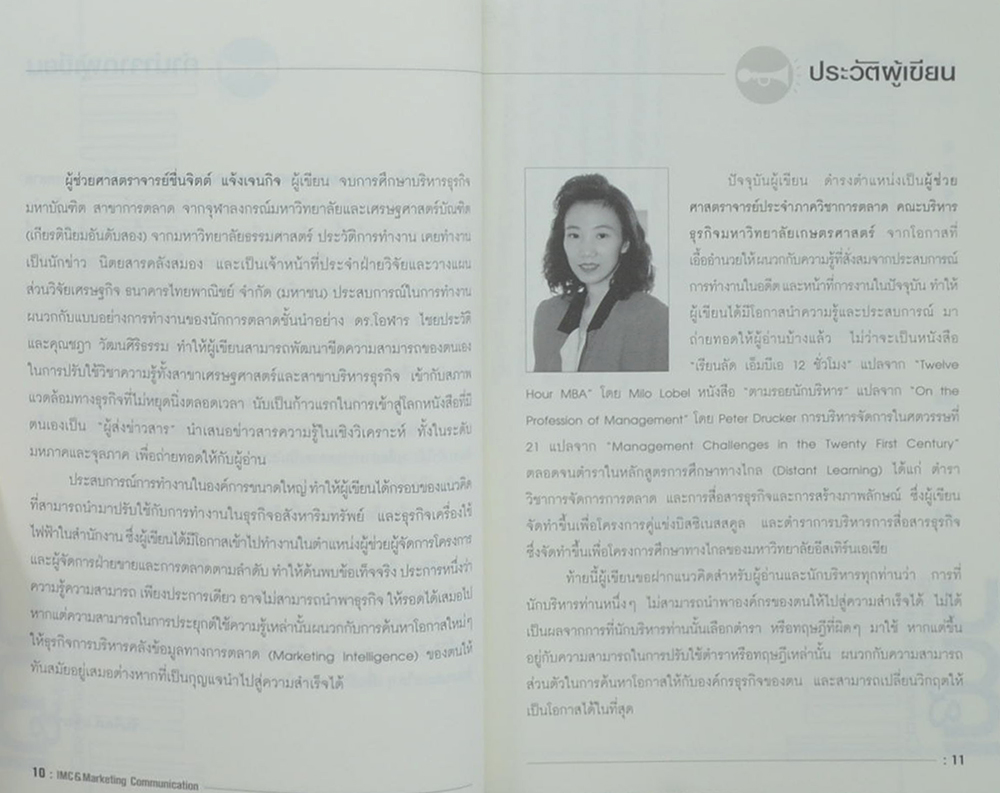 ผู้ช่วยศาสตราจารย์ชื่นจิตต์ แจ้งเจนกิจ ผู้เขียน จบการศึกษาบริหารธุรกิจ
มหาบัณฑิต สาขาการตลาด จากจุฬาลงกรณ์มหาวิทยาลัยและเศรษฐศาสตร์บัณฑิต
(เกียรตินิยมอันดับสอง) จากมหาวิทยาลัยธรรมศาสตร์ ประวัติการทำงาน เคยทำงาน
เป็นนักข่าว นิตยสารคลังสมอง และเป็นเจ้าหน้าที่ประจำฝ่ายวิจัยและวางแผน
ส่วนวิจัยเศรษฐกิจ ธนาคารไทยพาณิชย์ จำกัด (มหาชน) ประสบการณ์ในการทำงาน
ผนวกกับแบบอย่างการทำงานของนักการตลาดชั้นนำอย่าง ดร.โอฬาร ไชยประวัติ
และคุณชฎา วัฒนศิริธรรม ทำให้ผู้เขียนสามารถพัฒนาขีดความสามารถของตนเอง
ในการปรับใช้วิชาความรู้ทั้งสาขาเศรษฐศาสตร์และสาขาบริหารธุรกิจ เข้ากับสภาพ
แวดล้อมทางธุรกิจที่ไม่หยุดนิ่งตลอดเวลา นับเป็นก้าวแรกในการเข้าสู่โลกหนังสือที่มี
ตนเองเป็น "ผู้ส่งข่าวสาร" นำเสนอข่าวสารความรู้ในเชิงวิเคราะห์ ทั้งในระดับ
มหภาคและจุลภาค เพื่อถ่ายทอดให้กับผู้อ่าน
ประสบการณ์การทำงานในองค์การขนาดใหญ่ ทำให้ผู้เขียนได้กรอบของแนวคิด
ที่สามารถนำมาปรับใช้กับการทำงานในธุรกิจอสังหาริมทรัพย์ และธุรกิจเครื่องใช้
ไฟฟ้าในสำนักงาน ซึ่งผู้เขียนได้มีโอกาสเข้าไปทำงานในตำแหน่งผู้ช่วยผู้จัดการโครงการ
และผู้จัดการฝ่ายขายและการตลาดตามลำดับ ทำให้ค้นพบข้อเท็จจริง ประการหนึ่งว่า
ความรู้ความสามารถ เพียงประการเดียว อาจไม่สามารถนำพาธุรกิจ ให้รอดได้เสมอไป
หากแต่ความสามารถในการประยุกต์ใช้ความรู้เหล่านั้นผนวกกับการค้นหาโอกาสใหม่ๆ
ให้ธุรกิจการบริหารคลังข้อมูลทางการตลาด (Marketing Intelligence) ของตนให้
ทันสมัยอยู่เสมอต่างหากที่เป็นกุญแจนำไปสู่ความสำเร็จได้
10 : IMC&Marketing Communication
ประวัติผู้เขียน
ปัจจุบันผู้เขียน ดำรงตำแหน่งเป็นผู้ช่วย
ศาสตราจารย์ประจำภาควิชาการตลาด คณะบริหาร
ธุรกิจมหาวิทยาลัยเกษตรศาสตร์ จากโอกาสที่
เอื้ออำนวยให้ผนวกกับความรู้ที่สั่งสมจากประสบการณ์
การทำงานในอดีต และหน้าที่การงานในปัจจุบัน ทำให้
ผู้เขียนได้มีโอกาสนำความรู้และประสบการณ์ มา
ถ่ายทอดให้ผู้อ่านบ้างแล้ว ไม่ว่าจะเป็นหนังสือ
"เรียนลัด เอ็มบีเอ 12 ชั่วโมง" แปลจาก "Twelve
Hour MBA" โดย Milo Lobel หนังสือ "ตามรอยนักบริหาร" แปลจาก "On the
Profession of Management" โดย Peter Drucker การบริหารจัดการในศตวรรษที่
21 แปลจาก "Management Challenges in the Twenty First Century"
ตลอดจนตำราในหลักสูตรการศึกษาทางไกล (Distant Learning) ได้แก่ ตำรา
วิชาการจัดการการตลาด และการสื่อสารธุรกิจและการสร้างภาพลักษณ์ ซึ่งผู้เขียน
จัดทำขึ้นเพื่อโครงการคู่แข่งบิสซิเนสสคูล และตำราการบริหารการสื่อสารธุรกิจ
ซึ่งจัดทำขึ้นเพื่อโครงการศึกษาทางไกลของมหาวิทยาลัยอีสเทิร์นเอเชีย
ท้ายนี้ผู้เขียนขอฝากแนวคิดสำหรับผู้อ่านและนักบริหารทุกท่านว่า การที่
นักบริหารท่านหนึ่งๆ ไม่สามารถนำพาองค์กรของตนให้ไปสู่ความสำเร็จได้ ไม่ได้
เป็นผลจากการที่นักบริหารท่านนั้นเลือกตำรา หรือทฤษฎีที่ผิดๆ มาใช้ หากแต่ขึ้น
อยู่กับความสามารถในการปรับใช้ตำราหรือทฤษฎีเหล่านั้น ผนวกกับความสามารถ
ส่วนตัวในการค้นหาโอกาสให้กับองค์กรธุรกิจของตน และสามารถเปลี่ยนวิกฤตให้
เป็นโอกาสได้ในที่สุด
: 11